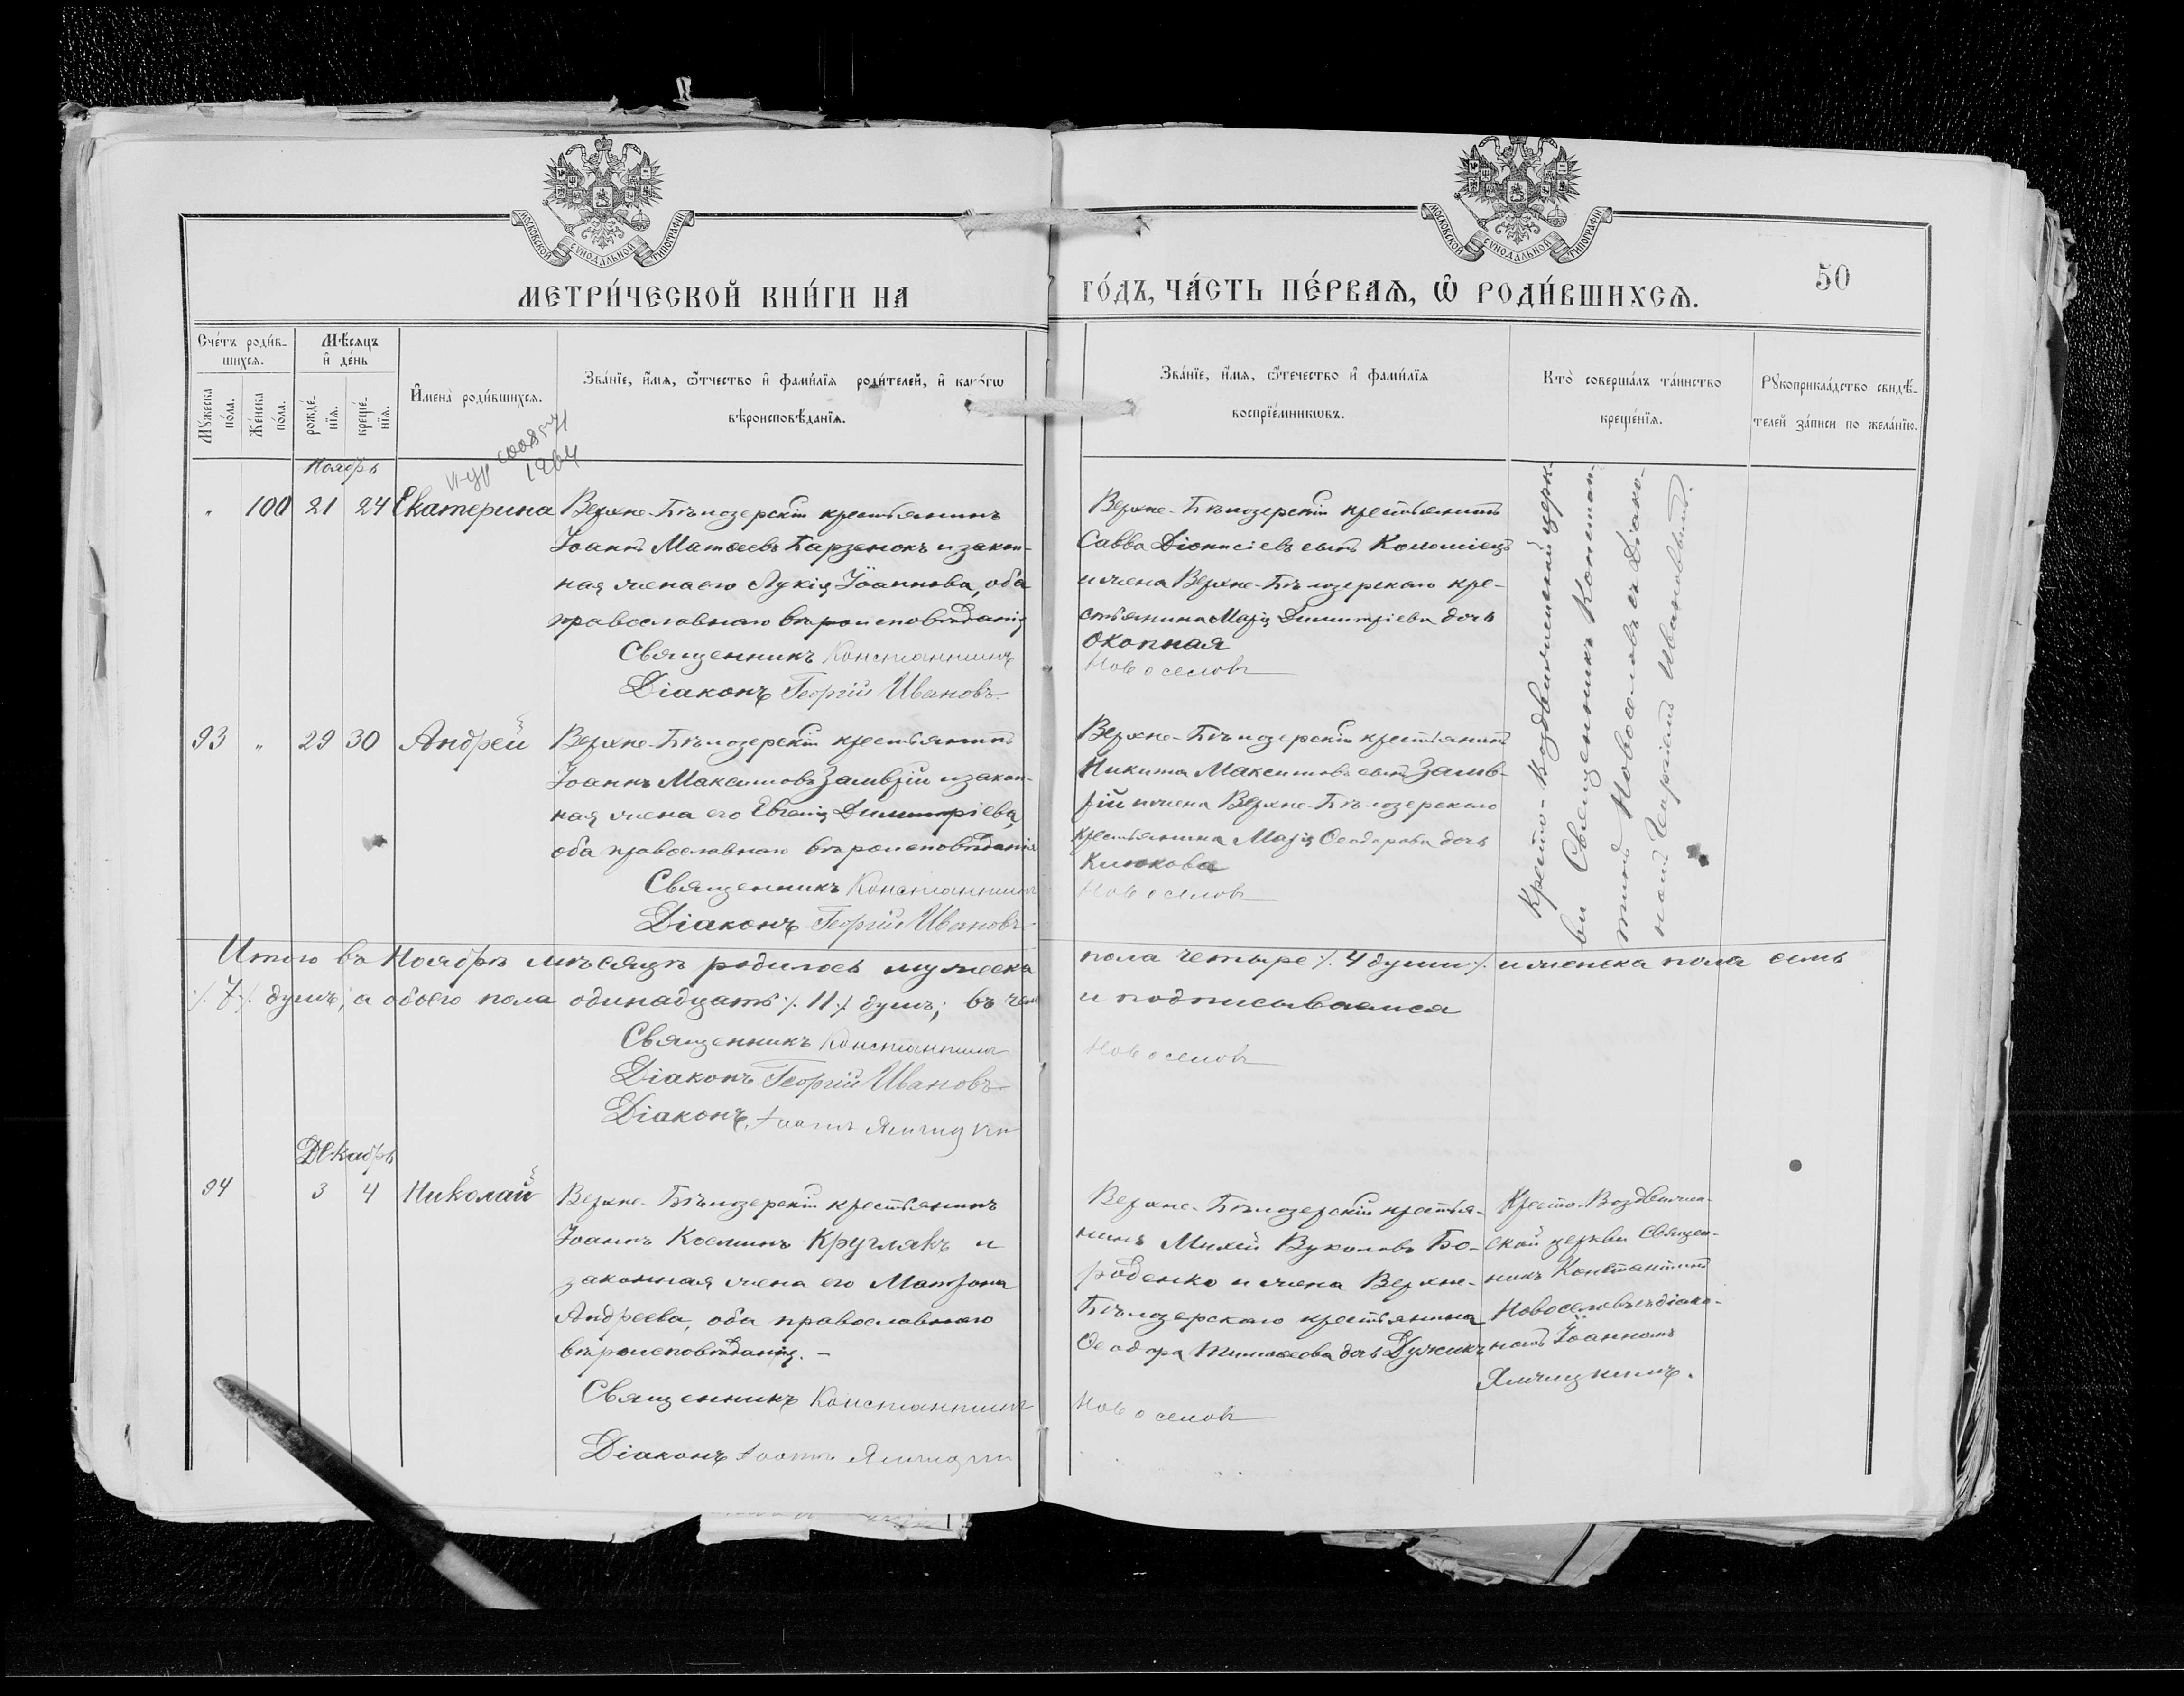 МОСКОВСКОЙ СУНОДАЛЬНОЙ ТИПОГРАФІИ
МОСКОВСКОЙ СУНОДАЛЬНОЙ ТИПОГРАФІИ
МЕТРИ́ЧЕСКОЙ КНИ́ГИ НА
ГО́ДЪ, ЧА́СТЬ ПЕ́РВАѦ, Ѡ҆ РОДИ́ВШИХСѦ.
50
Сче́тъ роди́в-
шихсѧ.
Мꙋ́жеска по́ла.
Же́нска по́ла.
Мѣ́сѧцъ
и҆ де́нь
рожде́-
нїѧ.
креще́-
нїѧ.
И҆мена̀ роди́вшихсѧ.
Зва́нїе, и҆́мѧ, ѻ҆́тчество и҆ фами́лїѧ роди́телей, и҆ како́гѡ
вѣроисповѣ́данїѧ.
Зва́нїе, и҆́мѧ, ѻ҆́течество и҆ фами́лїѧ
воспрїе́мникѡвъ.
Кто̀ соверша́лъ та́инство
креще́нїѧ.
Рꙋкоприкла́дство свидѣ́-
телей за́писи по жела́нїю.
1904
Ноябрь
" 100 21 24 Екатерина
Верхне-Бѣлозерскій крестьянинъ
Іоаннъ Матѳеевъ Барзенокъ и закон-
ная жена его Лукія Іоаннова, оба
православнаго вѣроисповѣданія
Священникъ Константинъ
Діаконъ Георгій Ивановъ
Верхне-Бѣлозерскій крестьянинъ
Савва Діонисіевъ сынъ Коломіецъ
и жена Верхне-Бѣлозерскаго кре-
стьянина Марія Димитріева дочь
Окопная
Новоселовъ
Кресто-Воздвиженской церк-
ви Священникъ Констан-
тинъ Новоселовъ съ Діако-
номъ Георгіемъ Ивановымъ.
93 " 29 30 Андрей
Верхне-Бѣлозерскій крестьянинъ
Іоаннъ Максимовъ Замврій и закон-
ная жена его Евгенія Димитріева,
оба православнаго вѣроисповѣданія
Священникъ Константинъ
Діаконъ Георгій Ивановъ
Верхне-Бѣлозерскій крестьянинъ
Никита Максимовъ сынъ Замв-
рій и жена Верхне-Бѣлозерскаго
крестьянина Марія Ѳеодорова дочь
Кинкова
Новоселовъ
Итого въ Ноябрѣ мѣсяцѣ родилось мужеска
пола четыре ./. 4 души ./. и женска пола семь
./. 7 ./. душъ, а обоего пола одинадцать ./. 11 ./. душъ; въ чемъ
и подписываемся
Священникъ Константинъ
Новоселовъ
Діаконъ Георгій Ивановъ
Діаконъ Іоаннъ
Декабрь
94 3 4 Николай
Верхне-Бѣлозерскій крестьянинъ
Іоаннъ Косминъ Круглякъ и
законная жена его Матрона
Андреева, оба православнаго
вѣроисповѣданія. –
Священникъ Константинъ
Діаконъ Іоаннъ
Верхне-Бѣлозерскій крестья-
нинъ Михей Вуколовъ Бо-
роденко и жена Верхне-
Бѣлозерскаго крестьянина
Ѳеодора Тимоѳеева дочь
Новоселовъ
Кресто-Воздвижен-
ской церкви Священ-
никъ Константинъ
Новоселовъ съ діако-
номъ Іоанномъ